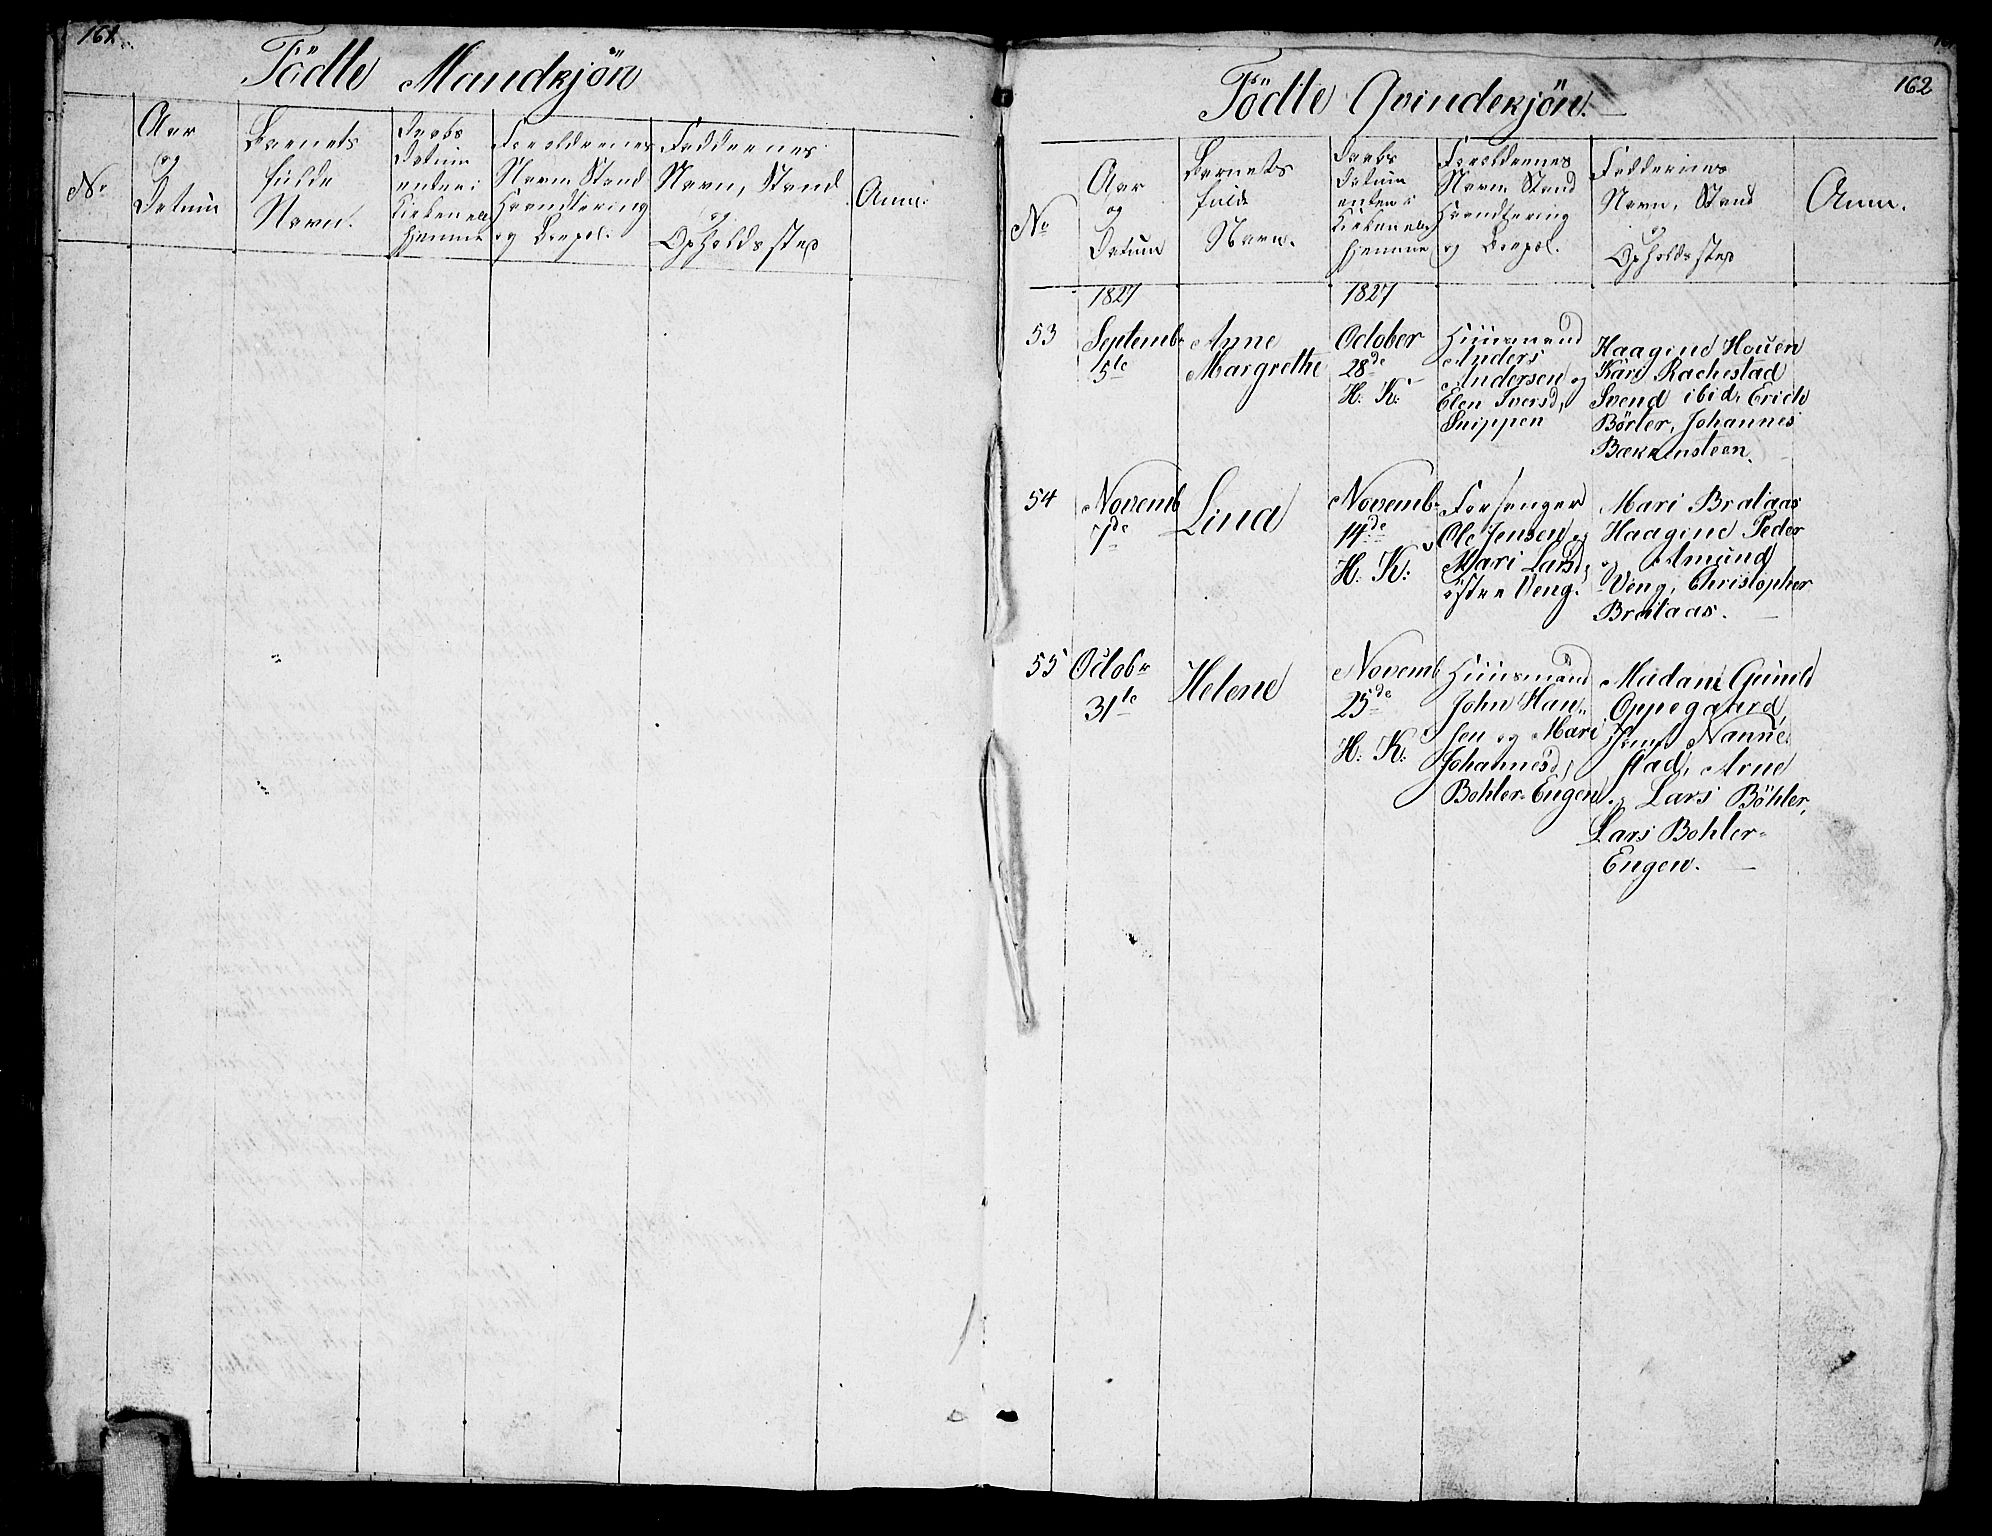 161
Födte Mandkjön
No
Aar
og
Datum
Barnets
fulde
Navn.
Daabs
Datum
enten i
Kirken ell.
hjemme
Foreldrenes
Navn, Stand
Haandtering
og Boepel.
Faddernes
Navn, Stand
og
Opholdssted
Anm.
162
Födte Qvindekjön.
No
Aar
og
Datum
Barnets
fulde
Navn.
Daabs
Datum
enten i
Kirken ell.
hjemme
Foreldrenes
Navn Stand
Haandtering
og Boepel.
Faddernes
Navn, Stand
og
Opholdssted
Anm.
1827
1827
53
Septembr
5te
Anne
Margrethe
October
28de
H. K:
Huusmand
Anders
Andersen og
Elen Iversd,
Snippen
Haagine Houen
Kari Rachestad
Svend ibid, Erich
Börter, Johannes
Bækkensteen.
54
Novemb
7de
Lina
Novembr
14de
H. K:
Forsanger
Ole Jensen og
Mari Larsd,
östre Veng.
Mari Brataas
Haagine Peder
og Amund
Veng, Christopher
Brataas.
55
Octobr
31te
Helene
Novemb
25de
H. K:
Huusmand
John Han-
sen og Mari
Johannesd,
Bohler-Engen
Madam Gunild
Oppegaard,
Nanne-
stad, Arne
og Lars Böhler,
Lars Bohler-
Engen.